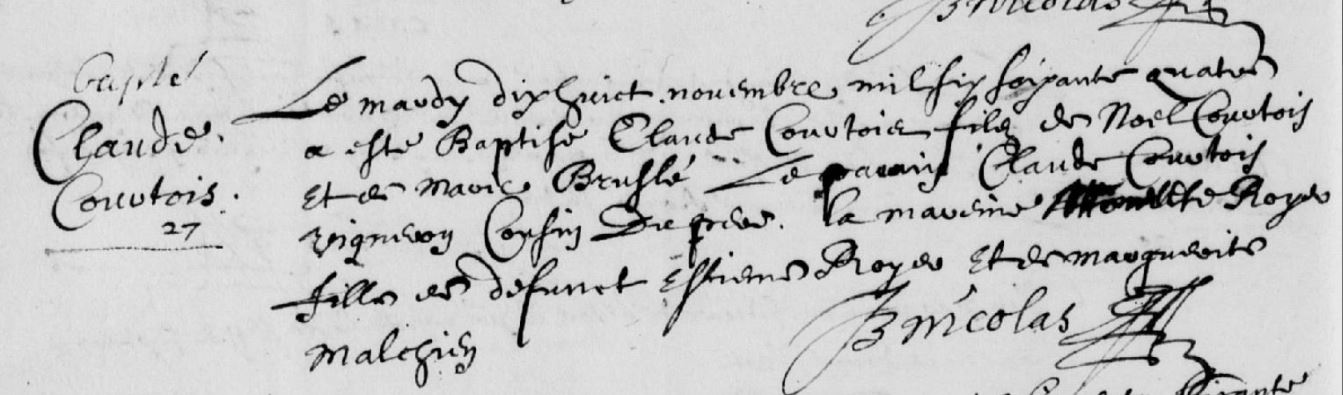 BNicolas
bapte
Claude
Courtois
27
Le mardy dixhuict novembre mil six soixante quatre
a este Baptise Claude Courtois fils de Noel Courtois
Et de Marie Bruslé Le parain Claude Courtois
vigneron Cousin Du pere. la mareine Royer
fille de deffunct Estienne Royer Et de marguerite
Malchien
BNicolas